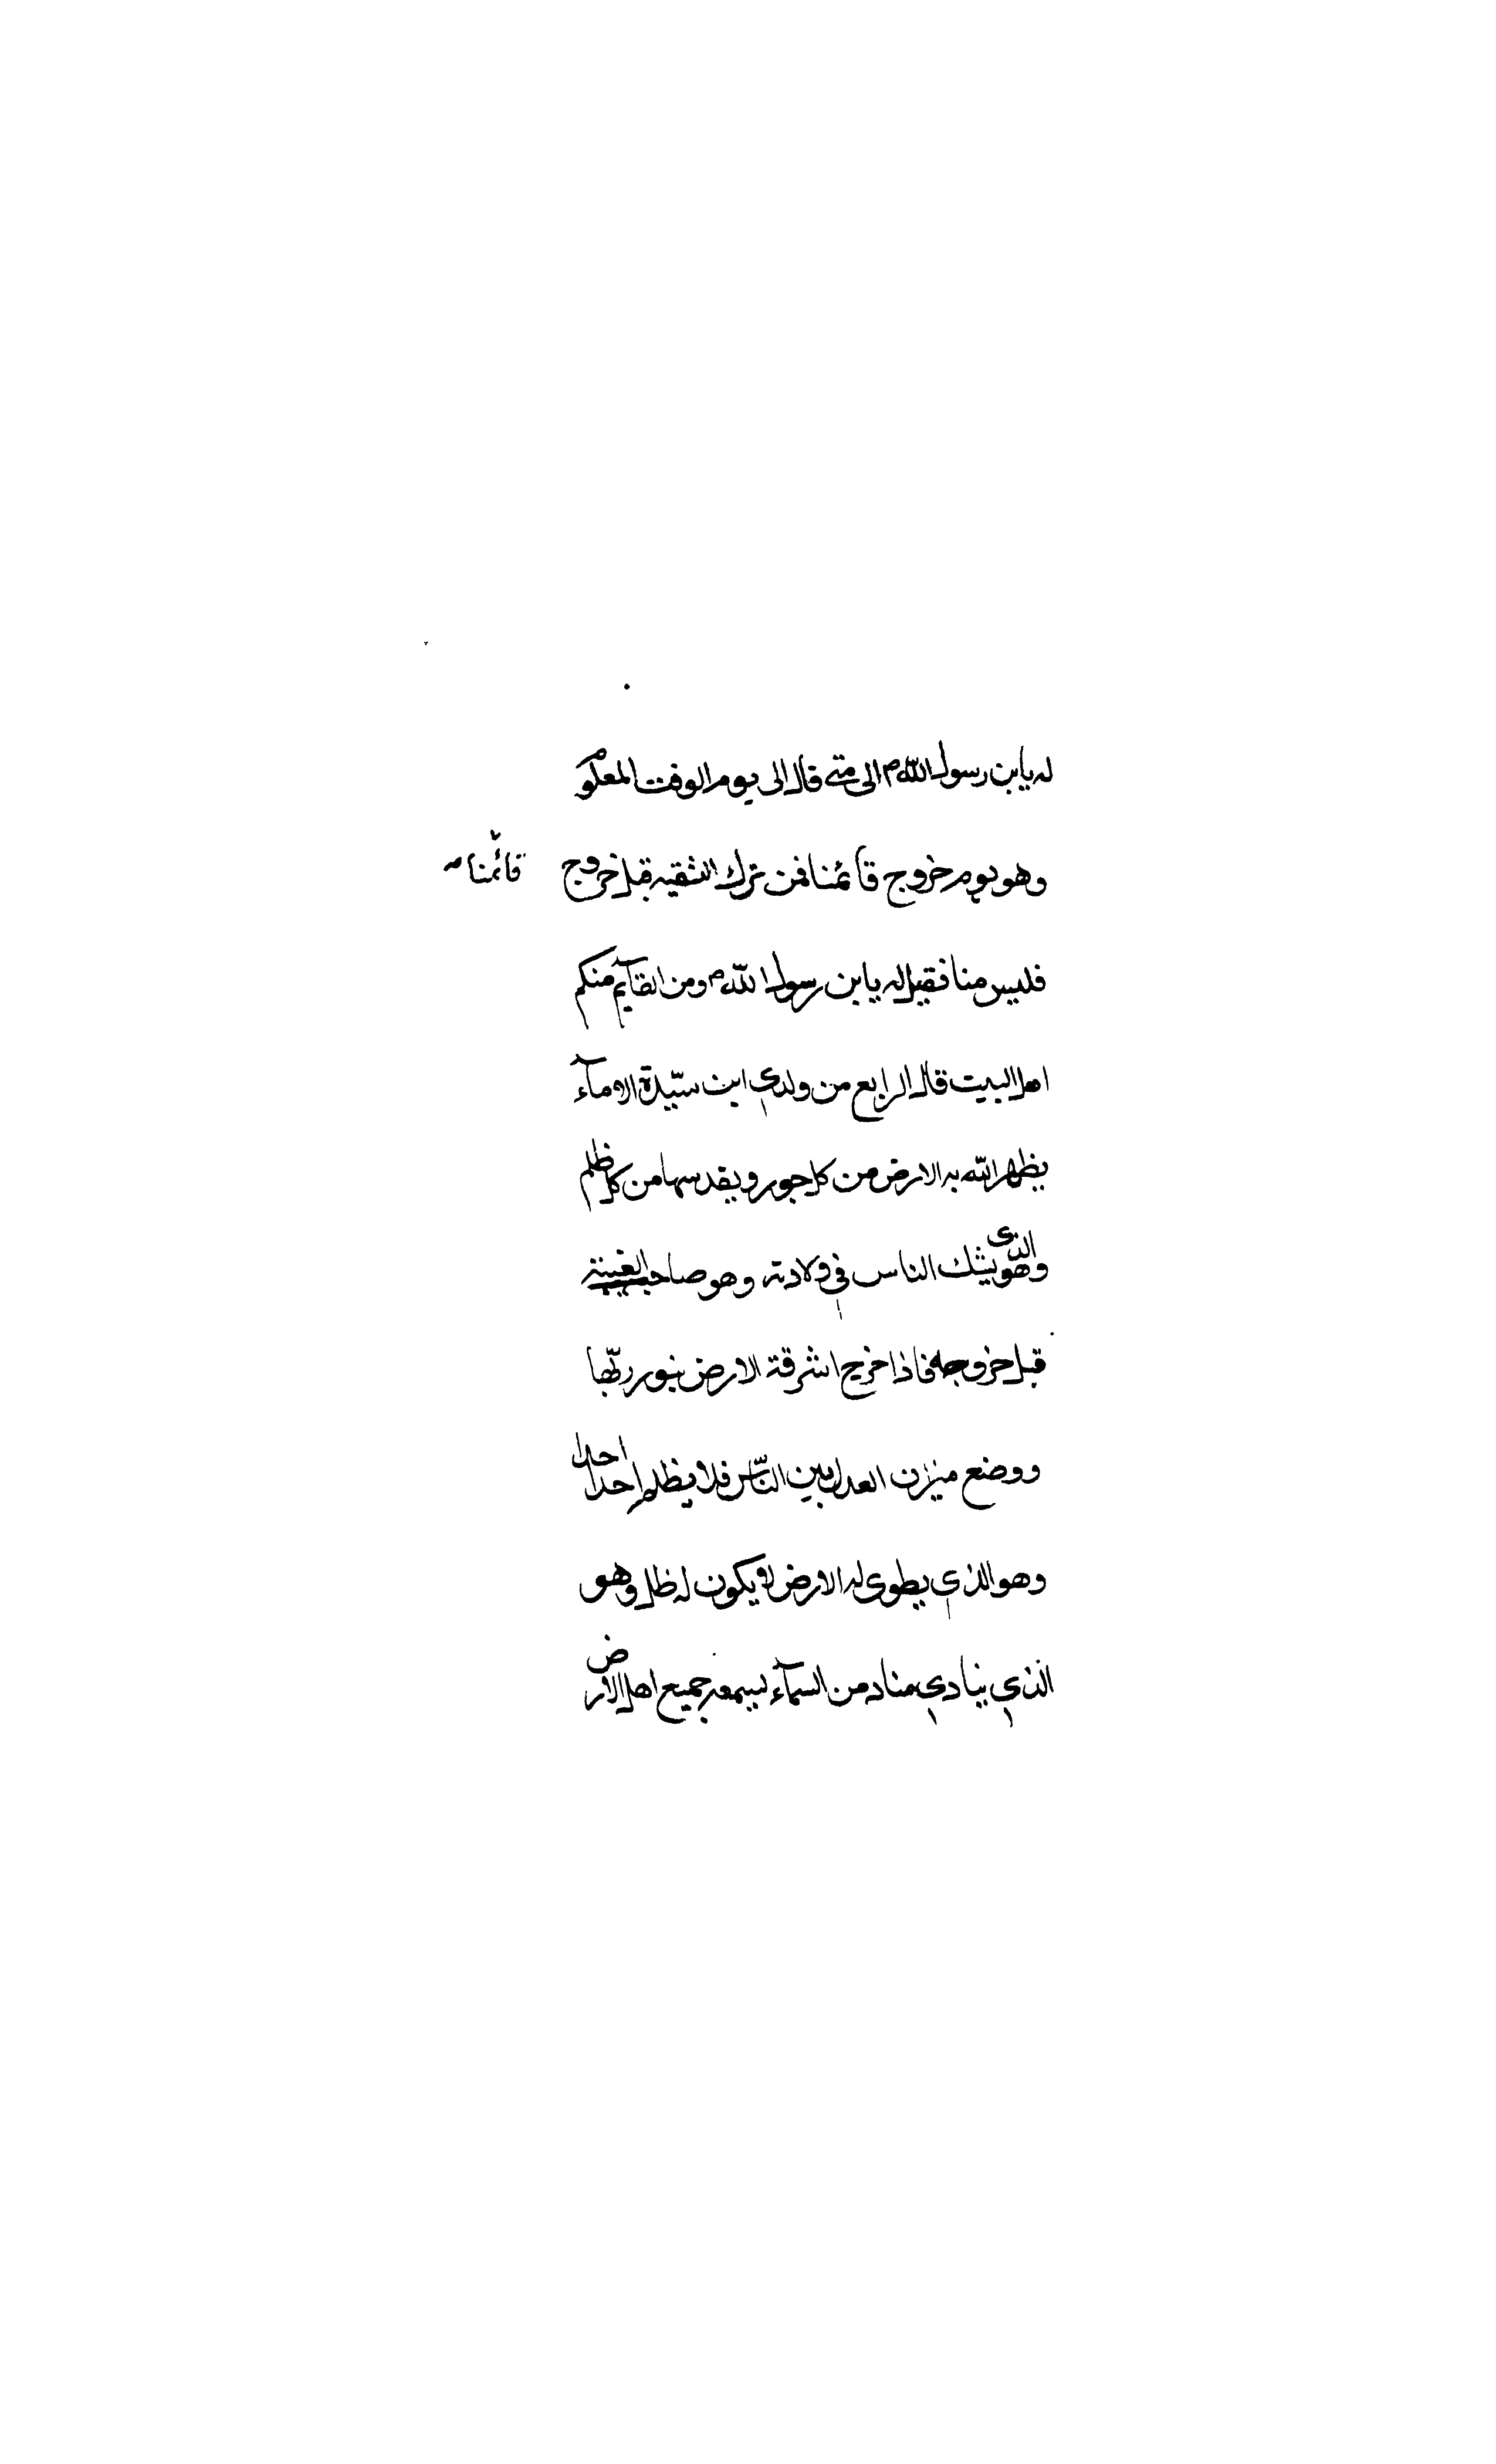 له يابن رسول الله ص الى متى قال الى يوم الوقت المعلوم
وهو يوم خروج قائمنا فمن ترك التقيه قبل خروج قائمنا
فليس منا فقيل له يابن رسول الله ص ومن القآيم منكم
اهل البيت قال الرابع من ولدي ابن سيّدة الامآء
يظهر الله به الارض من كل جور ويقدسها من كل ظلم
وهو الذى يشك الناس في ولادته وهو صاحب الغيبة
قبل خروجه فاذا خرج اشرقة الارض بنور ربّها
ووضع ميزان العدل بين النّاس فلا يظلم احد احدا
وهو الذي يطوى له الارض لا يكون له ظل وهو
الذي ينادي مناد من السمآء ليسمعه جميع اهل الارض